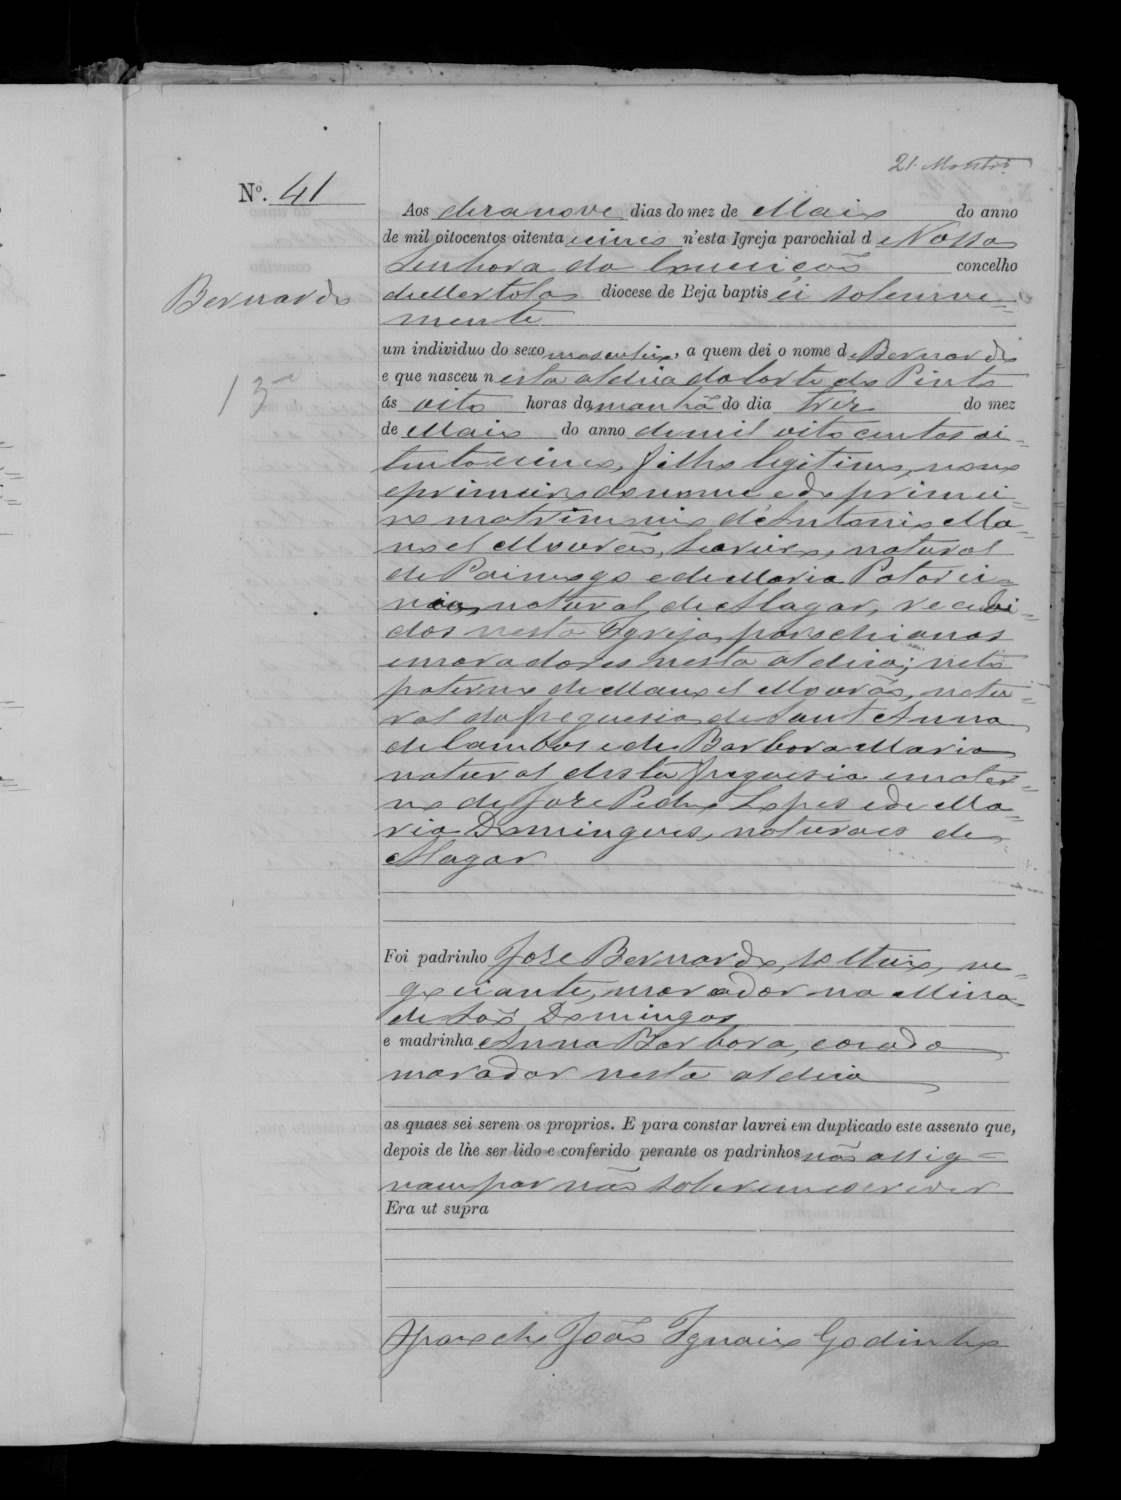 Nº. 41
Aos dezanove dias do mez de Maio do anno
de mil oitocentos oitenta e cinco n'esta Igreja parochial de Nossa
Senhora da Conceição concelho
Bernardo
de Mertola diocese de Beja baptisei solemne=
mente
um individuo do sexo masculino, a quem dei o nome de Bernardo
e que nasceu nesta aldeia da Corte do Pinto
ás oito horas da manhã do dia trez do mez
de Maio do anno de mil oito centos oi=
tenta e cinco, filho legitimo, nono
e primeiro do nome e do primei=
ro matrimonio d'Antonio Ma=
noel Mourão, natural
de e de Maria
natural de Alagar, recebi=
dos nesta Igreja, parochianos
e moradores nesta aldeia; neto
paterno de Manoel Mourão, natu=
ral da freguesia de Sant Anna
de Cambas e de Barbora Maria
natural desta freguesia e mater=
no de José Pedro Lopes e de Ma=
ria Domingues, naturaes de
Alagar
Foi padrinho José Bernardo, solteiro, ne=
gociante, morador na Mina
de São Domingos
e madrinha Anna Barbora, casada
morador nesta aldeia
as quaes sei serem os proprios. E para constar lavrei em duplicado este assento que,
depois de lhe ser lido e conferido perante os padrinhos não assig=
nam por não saberem escrever
Era ut supra
O parocho João Ignacio Godinho